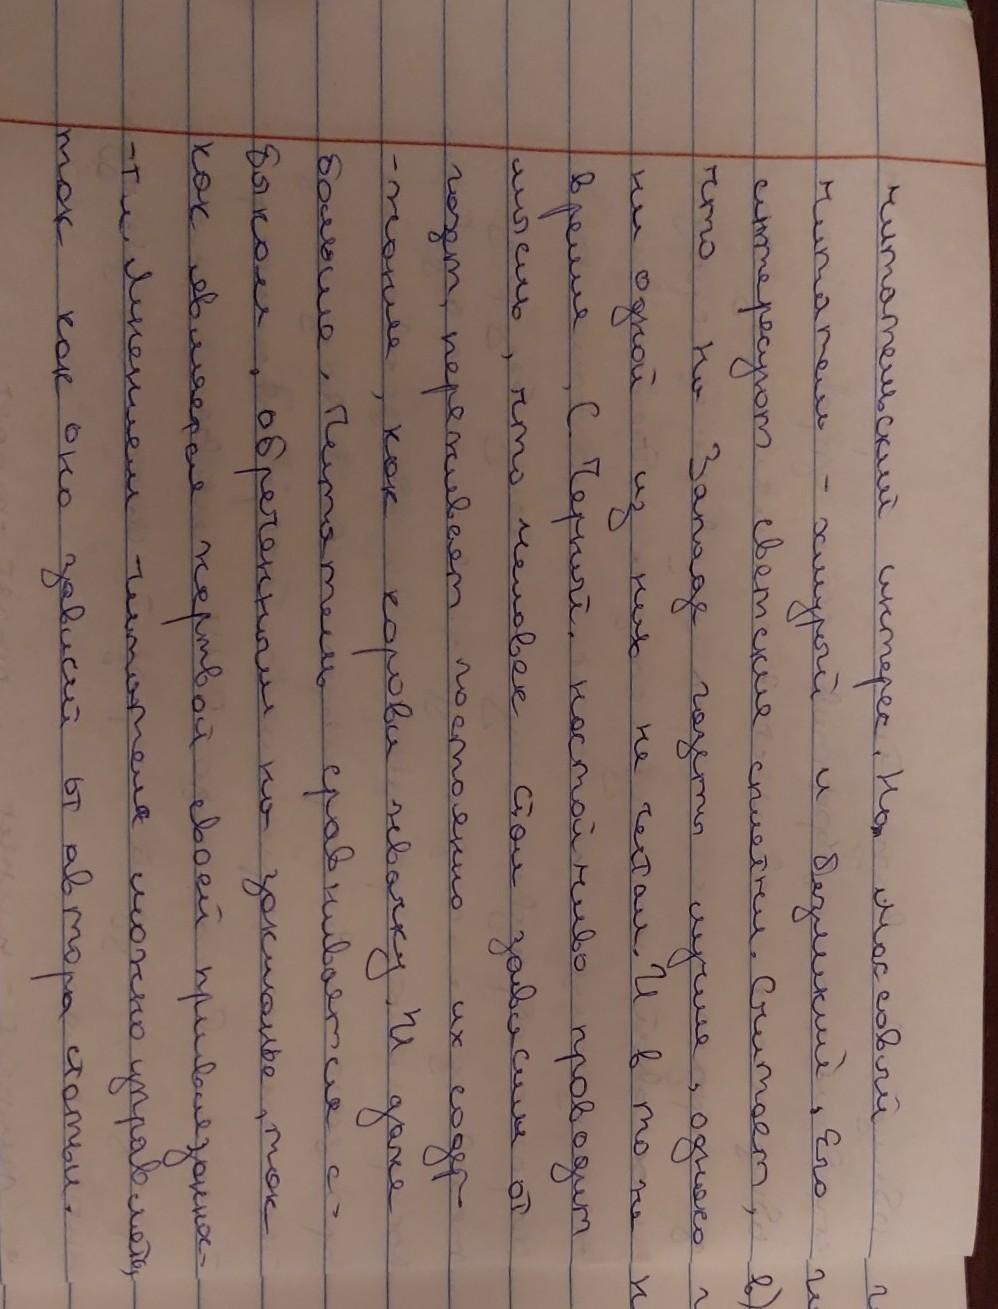 читательский интерес. Но, массовый
читатель - хмурый и безликий, Его
интересуют светские сплетни. Считает,
что на Западе газеты лучше, однако
ни одной из них не читал. И в то же
время, С. Черный, настойчиво проводит
мысль, что человек стал зависим от
газет, пережевает постоянно их содер-
-жание, как корова жвачку. И даже
больше. Читатель сравнивается с
быком, обреченным на заклонье, так
как является жертвой своей привязанно-
-ти. Мнением читателя можно управлять,
так как оно зависит от автора статьи.